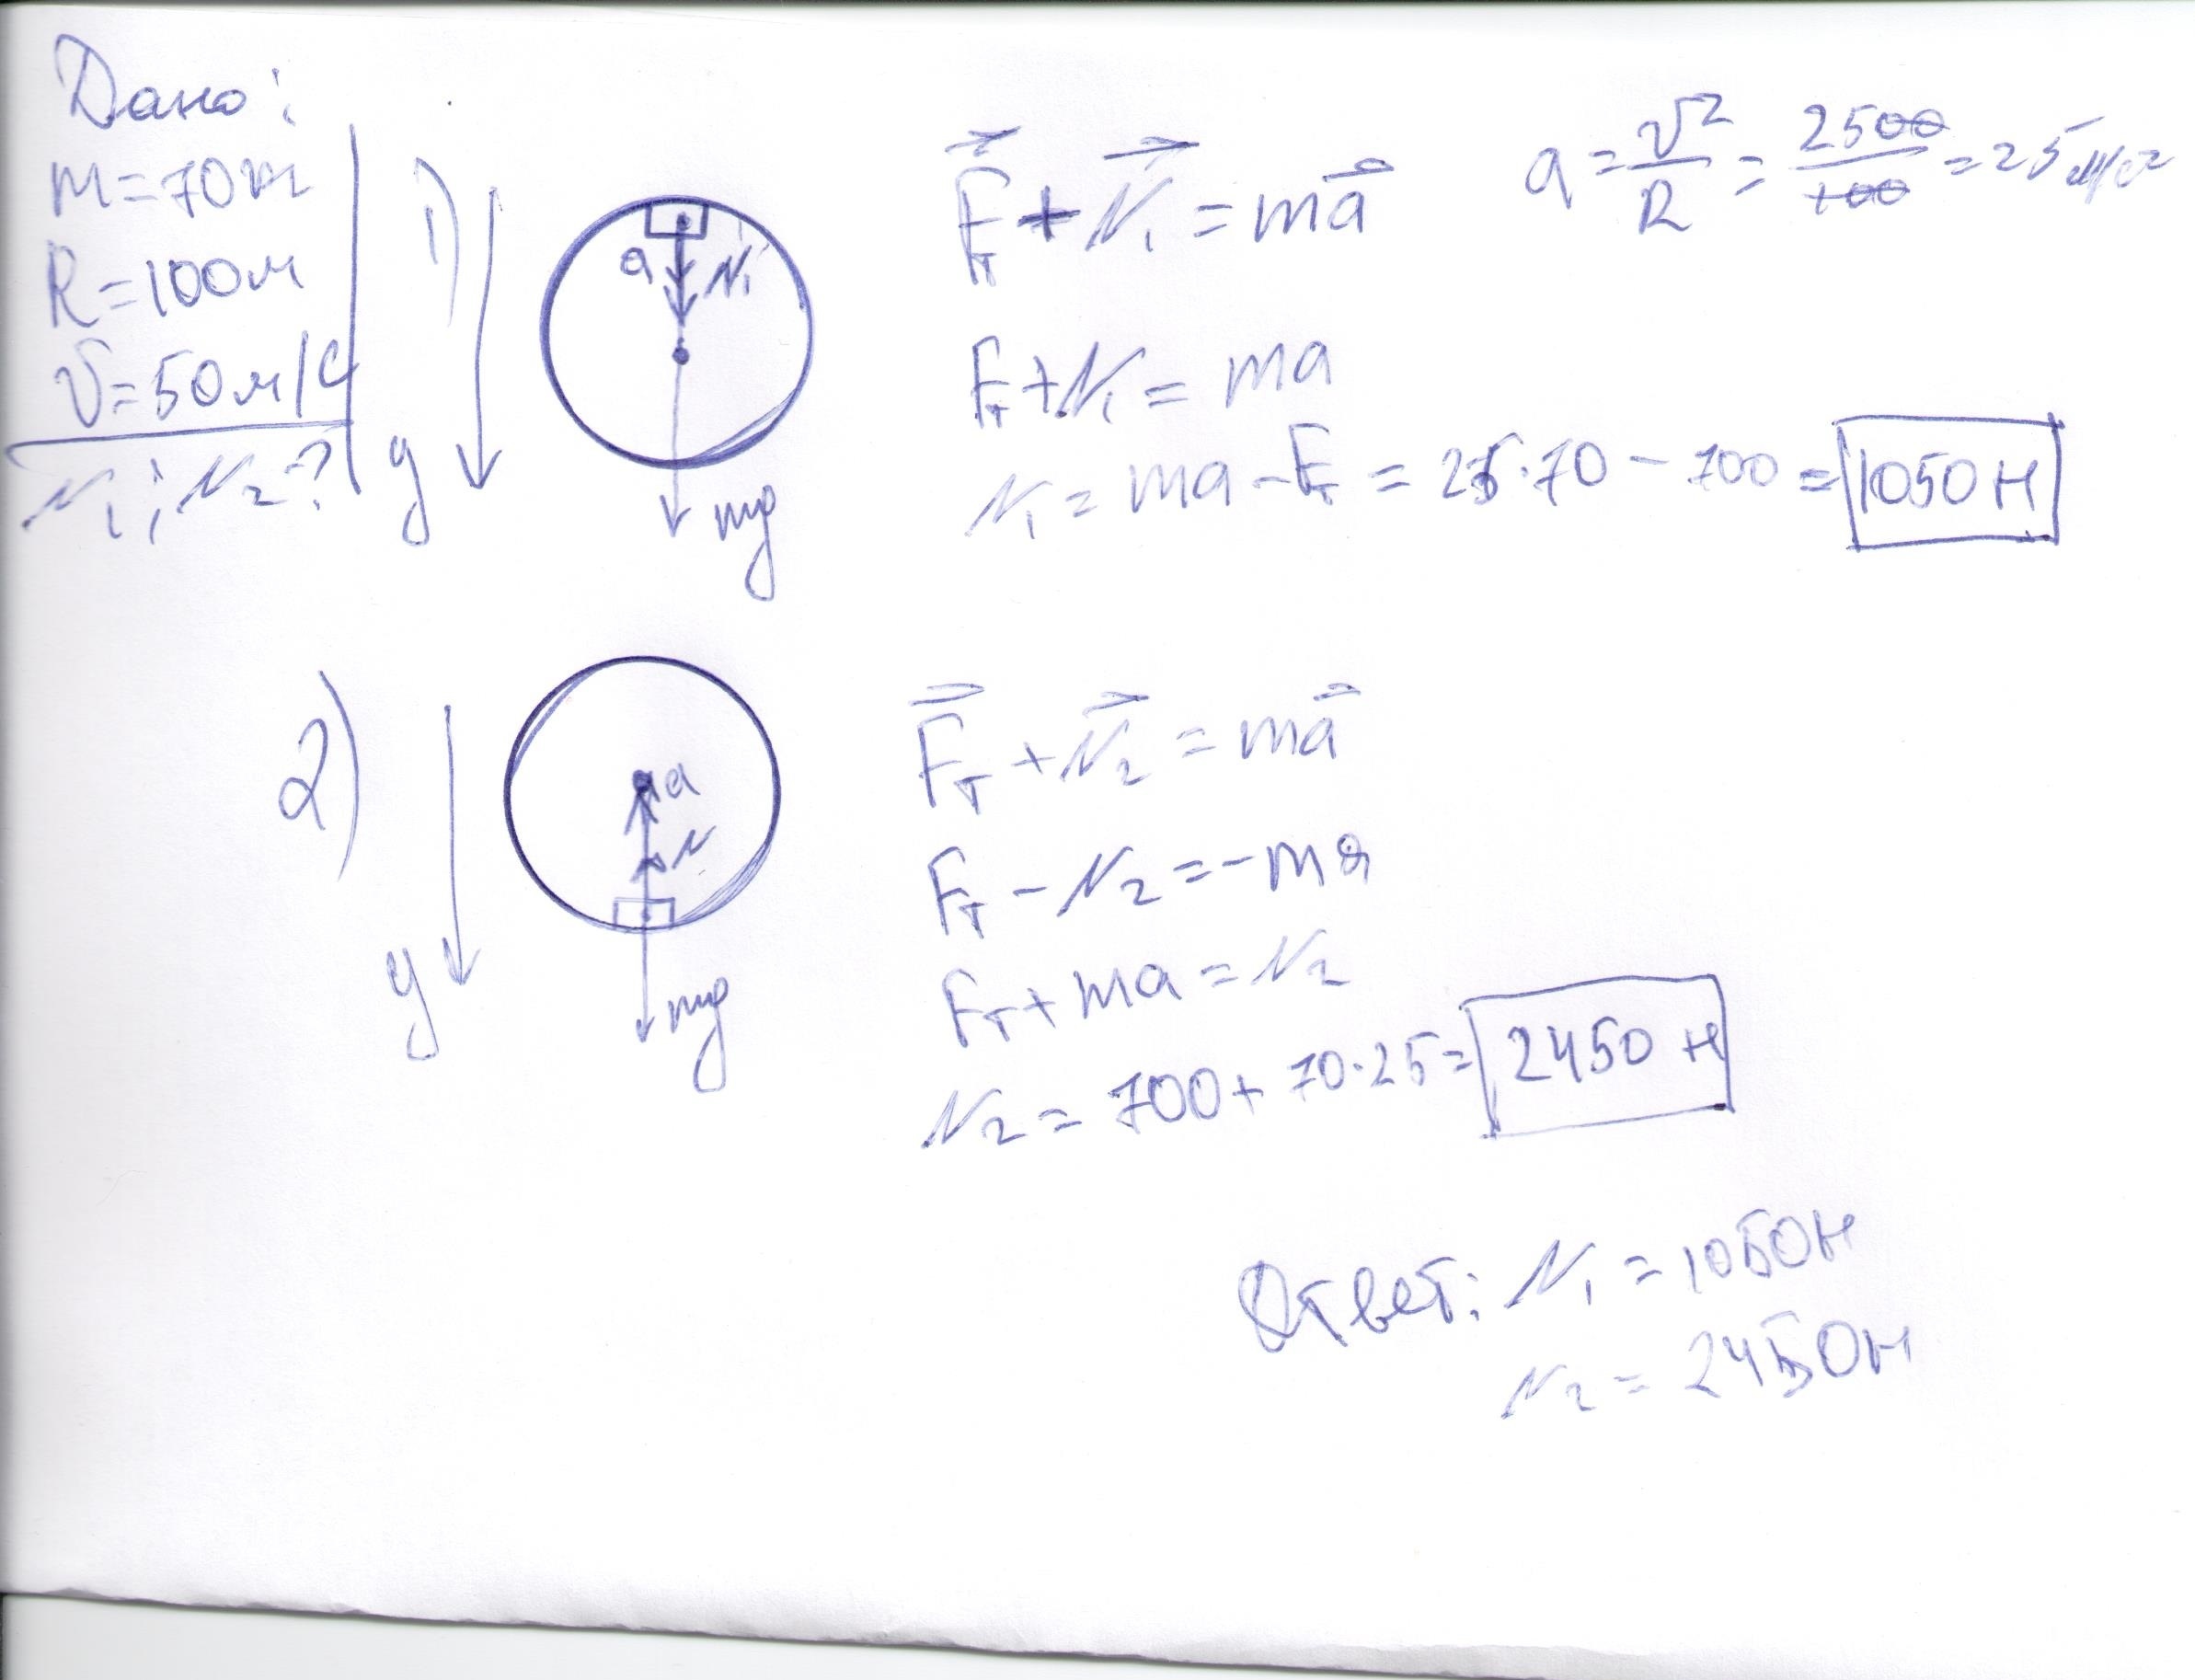 Дано:
m=70т
R=100м
v=50м/с
N₁; N₂?
1)
y
a
N₁
mg
F⃗т + N⃗₁ = ma⃗
a = v²/R = 2500/100 = 25 м/с²
Fт + N₁ = ma
N₁ = ma - Fт = 25·70 - 700 = 1050 Н
2)
y
a
N
mg
F⃗т + N⃗₂ = ma⃗
Fт - N₂ = -ma
Fт + ma = N₂
N₂ = 700 + 70·25 = 2450 Н
Ответ: N₁ = 1050Н
N₂ = 2450Н